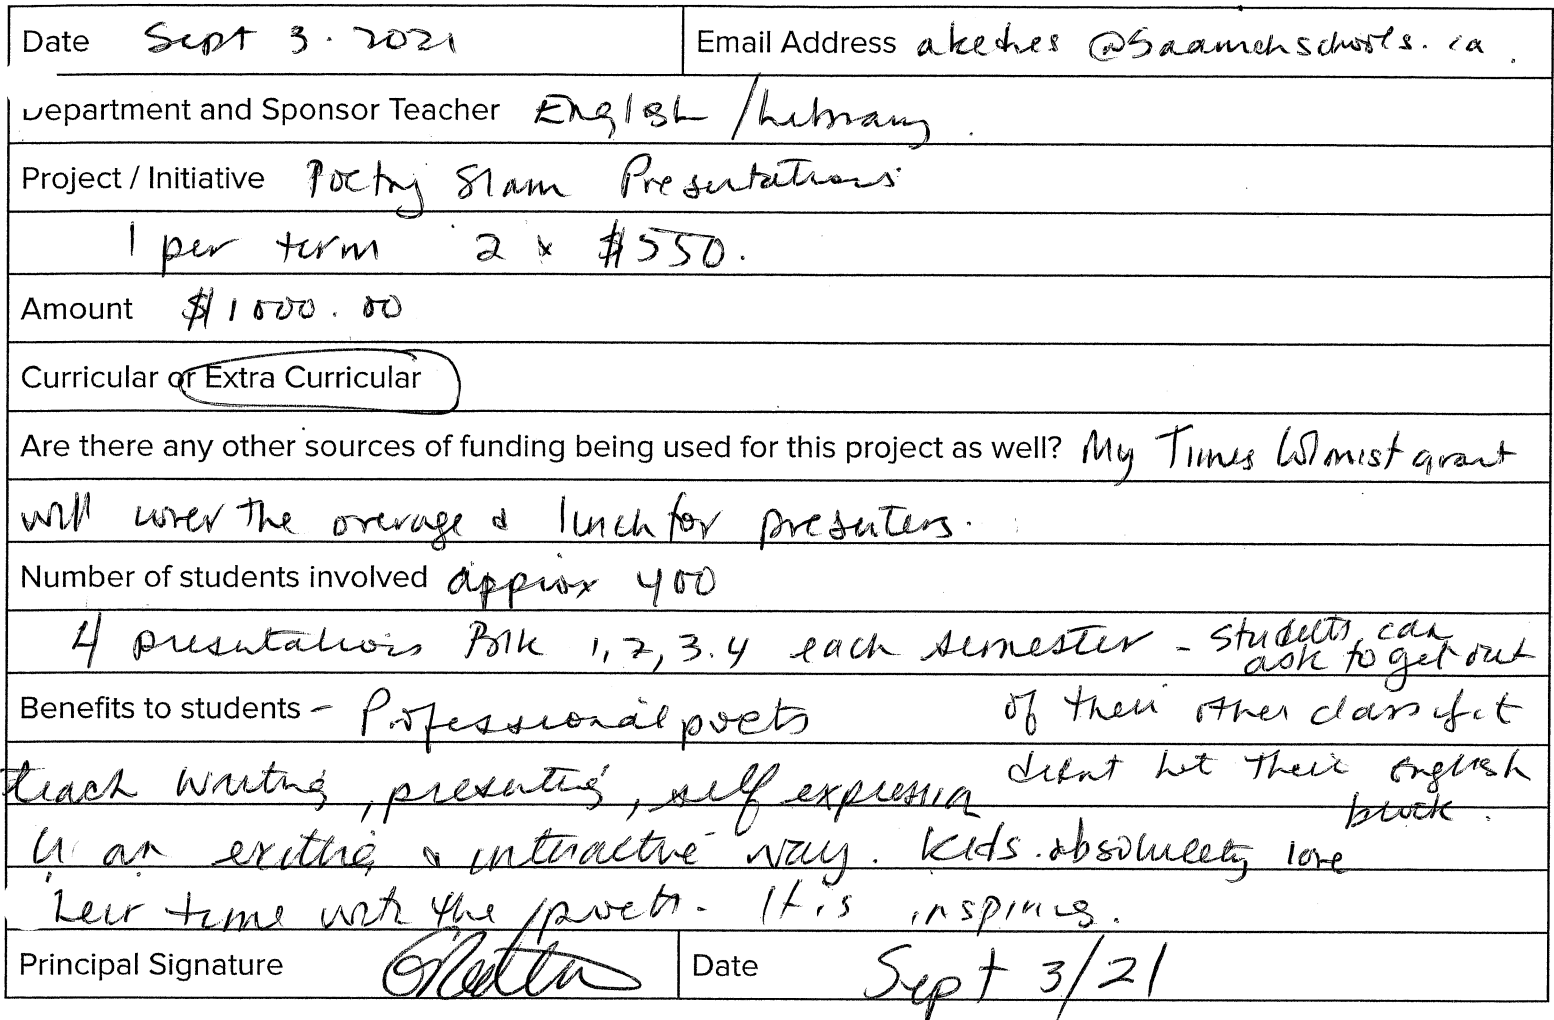 Date Sept 3. 2021 Email Address @Saanichschools.ca
Department and Sponsor Teacher English / Library
Project / Initiative Poetry Slam Presentations
1 per term 2 x $550.
Amount $1000.00
Curricular or Extra Curricular
Are there any other sources of funding being used for this project as well? My Times Colonist grant
will cover the overage & lunch for presenters.
Number of students involved approx 400
4 presentations Blk 1, 2, 3. 4 each semester - students can
ask to get out
Benefits to students - Professional poets
of their other class if it
teach writing, presenting, self expression
didn't hit their english
block.
in an exciting & interactive way. Kids absolutely love
their time with the poets. It is inspiring.
Principal Signature Date Sept 3/21